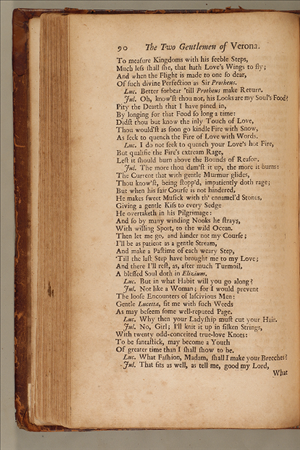 90 The Two Gentlemen of Verona.
To meaſure Kingdoms with his feeble Steps,
Much leſs ſhall ſhe, that hath Love's Wings to fly;
And when the Flight is made to one ſo dear,
Of ſuch divine Perfection as Sir Protheus.
Luc. Better forbear 'till Protheus make Return.
Jul. Oh, know'ſt thou not, his Looks are my Soul's Food?
Pity the Dearth that I have pined in,
By longing for that Food ſo long a time:
Didſt thou but know the inly Touch of Love,
Thou would'ſt as ſoon go kindle Fire with Snow,
As ſeek to quench the Fire of Love with Words.
Luc. I do not ſeek to quench your Love's hot Fire,
But qualifie the Fire's extream Rage,
Leſt it ſhould burn above the Bounds of Reaſon.
Jul. The more thou dam'ſt it up, the more it burns:
The Current that with gentle Murmur glides,
Thou know'ſt, being ſtopp'd, impatiently doth rage;
But when his fair Courſe is not hindered,
He makes ſweet Muſick with th' enamel'd Stones,
Giving a gentle Kiſs to every Sedge
He overtaketh in his Pilgrimage:
And ſo by many winding Nooks he ſtrays,
With willing Sport, to the wild Ocean.
Then let me go, and hinder not my Courſe;
I'll be as patient as a gentle Stream,
And make a Paſtime of each weary Step,
'Till the laſt Step have brought me to my Love;
And there I'll reſt, as, after much Turmoil,
A bleſſed Soul doth in Elizium.
Luc. But in what Habit will you go along?
Jul. Not like a Woman; for I would prevent
The looſe Encounters of laſcivious Men:
Gentle Lucetta, fit me with ſuch Weeds
As may beſeem ſome well-reputed Page.
Luc. Why then your Ladyſhip muſt cut your Hair.
Jul. No, Girl; I'll knit it up in ſilken Strings,
With twenty odd-conceited true-love Knots:
To be fantaſtick, may become a Youth
Of greater time than I ſhall ſhow to be.
Luc. What Faſhion, Madam, ſhall I make your Breeches?
Jul. That fits as well, as tell me, good my Lord,
What